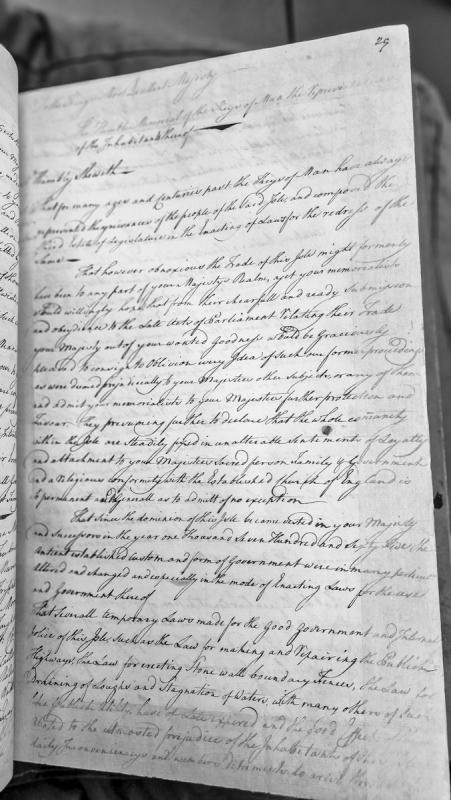 29
To the Kings Most Excellent Majesty
The Humble Memorial of the Keys of Man the Representatives
of the Inhabitants thereof
Humbly Sheweth
That for many ages and Centuries past the Keys of Man have always
represented the grievances of the people of the said Isle, and composed the
third estate of legislature in the Enacting of Laws for the redress of the
Same
That however obnoxious the Trade of this Isle might formerly
have been to any part of your Majesty's Realm, yet your memorialists
would willingly hope that from their chearfull and ready Submission
and obedience to the Late Acts of Parliament Relating their Trade
your Majesty out of your wonted Goodness would be Graciously
pleased to consign to Oblivion every Idea of Such our former proceedings
as were deemed prejudicially to your Majesties other Subjects, or any of them
and admit your memorialists to your Majesties further protection and
Favour. They presuming further to declare that the whole comunity
within the Isle are Steadily fixed in unalterable Sentiments of Loyalty
and attachment to your Majesties Sacred person Family & Government
and a religious conformity with the Established Church of England is
so permanent and generall as to admitt of no exception
That since the dominion of this Isle became vested in your Majesty
and Successors in the year one thousand Seven Hundred and Sixty five the
antient established custom and form of Government were in many
altered and changed and especially in the mode of Enacting Laws for the use
and Government thereof
That Severall temporary Laws made for the Good Government and Internal
police of this Isle, such as the Law for making and repairing the Publick
Highways, the Law for erecting Stone wall boundary Fences, the Law for
Drainning of Loughs and Stagnation of Waters, with many others of
the Publick Utility have of Late expired and the good Effect
to the utmost prejudice of the Inhabitants of
daily Inconveniencys and numbers detriments to arise